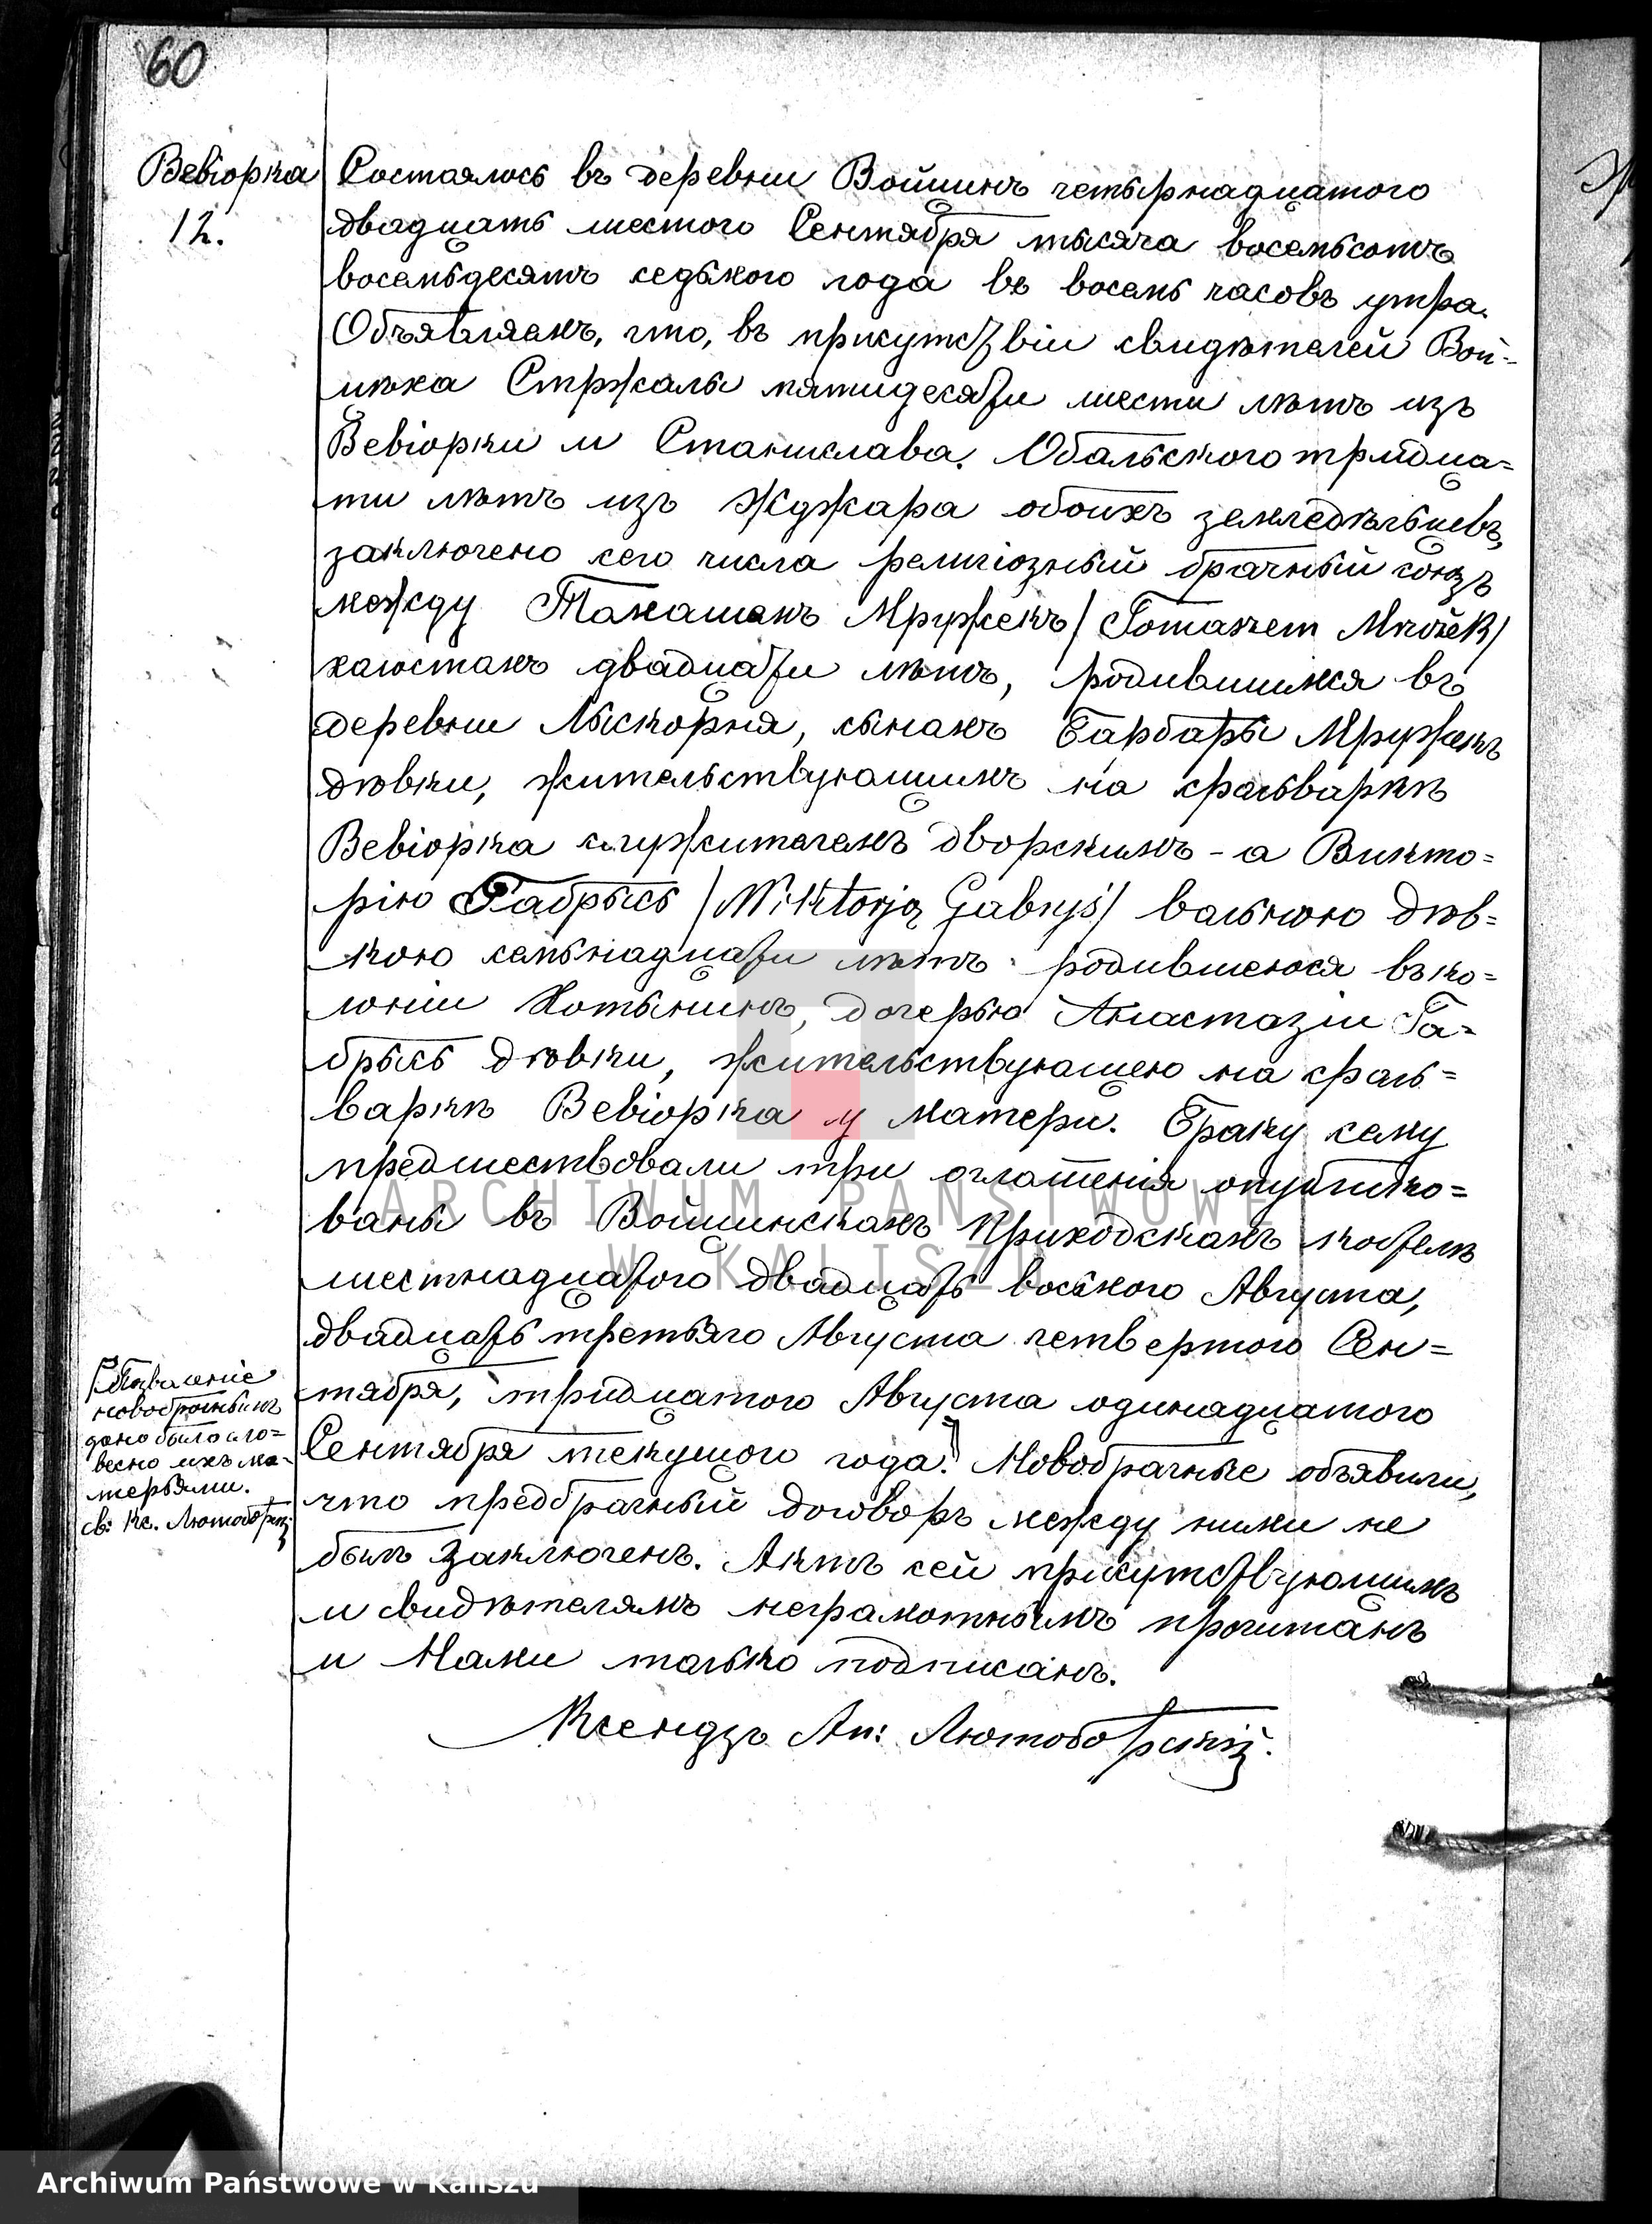 60
Вевіорка
12.
Состоялось въ деревни Войцинъ четырнадцатого
двадцать шестого Сентября тысяча восемьсотъ
восемьдесятъ седьмого года въ восемь часовъ утра.
Объявляемъ, что, въ присутствіи свидѣтелей Вой-
цѣха Стржалы пятидесяти шести лѣтъ изъ
Вевіорки и Станислава Обальского тридца=
ти лѣтъ изъ Жджара обоихъ земледѣльцевъ,
заключено сего числа религіозный брачный союзъ
между Томашемъ Мружекъ / Tomaszem Mrózek /
холостымъ двадцати лѣтъ, родившимся въ
деревни Лыскорня, сыномъ Барбары Мружекъ
дѣвки, жительствующимъ на фольваркѣ
Вевіорка служителемъ дворскимъ - а Викто=
рію Габрысь / Wiktorją Gabryś / вольною дѣв=
кою семьнадцати лѣтъ родившеюся въ ко=
лоніи Хотынинъ, дочерью Анастазіи Га=
брысь дѣвки, жительствующею на фоль=
варкѣ Вевіорка у матери. Браку сему
предшествовали три оглашенія опублико=
ваны въ Войцинскомъ приходскомъ костелѣ
шестнадцатого двадцать восьмого Августа,
двадцать третьяго Августа четвертого Сен=
тября, тридцатого Августа одинадцатого
Сентября текущого года. Новобрачные объявили,
что предбрачный договоръ между ними не
былъ заключенъ. Актъ сей присутствующимъ
и свидѣтелямъ неграмотнымъ прочитанъ
и Нами только подписанъ.
Ксендзъ Ан: Лютоборскій.
Позволеніе
новобрачнымъ
дано было сло=
весно ихъ ма-
терьями.
Кс. Лютоборскій
ARCHIWUM PAŃSTWOWE
W KALISZU
Archiwum Państwowe w Kaliszu